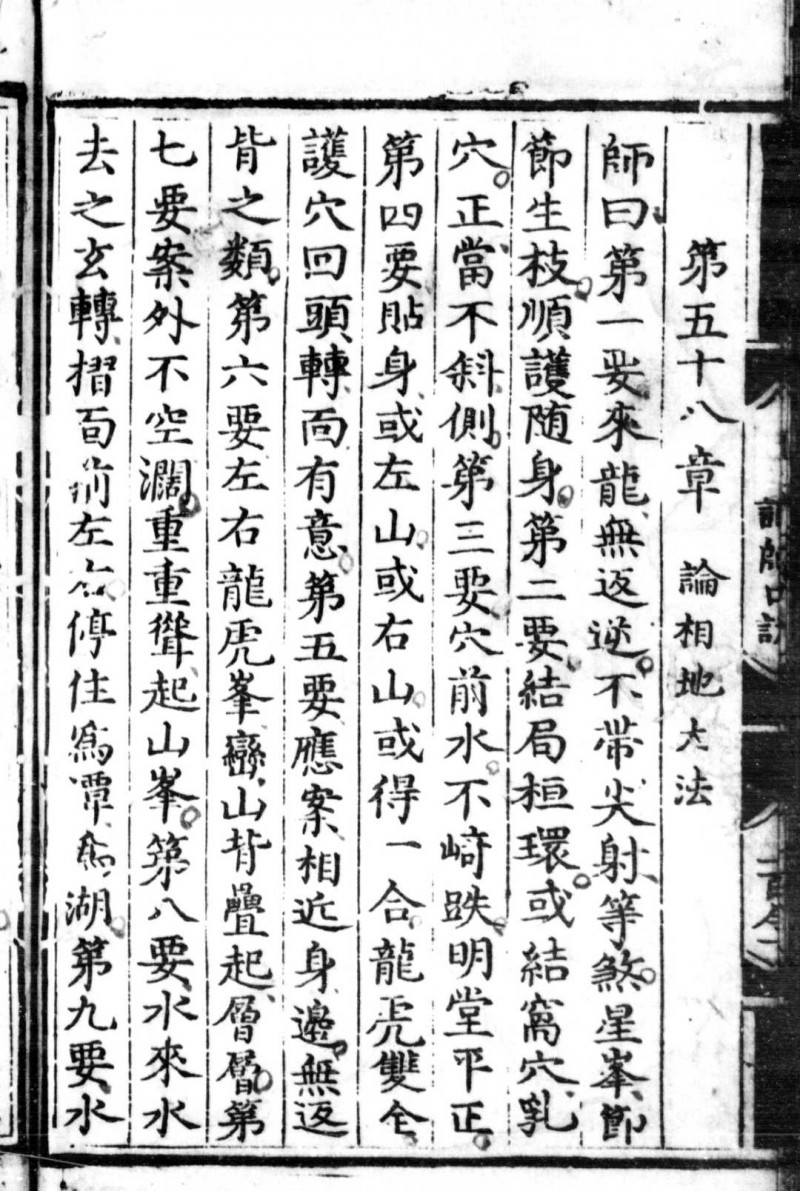 第五十八章 論相地大法
師曰第一要來龍無返逆不帶尖射等煞星峯節
節生枝順護随身第二要結局桓環或結窩穴乳
穴正當不斜側第三要穴前水不﨑跌明堂平正
第四要貼身或左山或右山或得一合龍虎雙全
護穴回頭轉面有意第五要應案相近身邊無返
背之類第六要左右龍虎峯巒山背疊起層層第
七要案外不空濶重重聳起山峯第八要水來水
去之玄轉摺面前左右停住為潭為湖第九要水